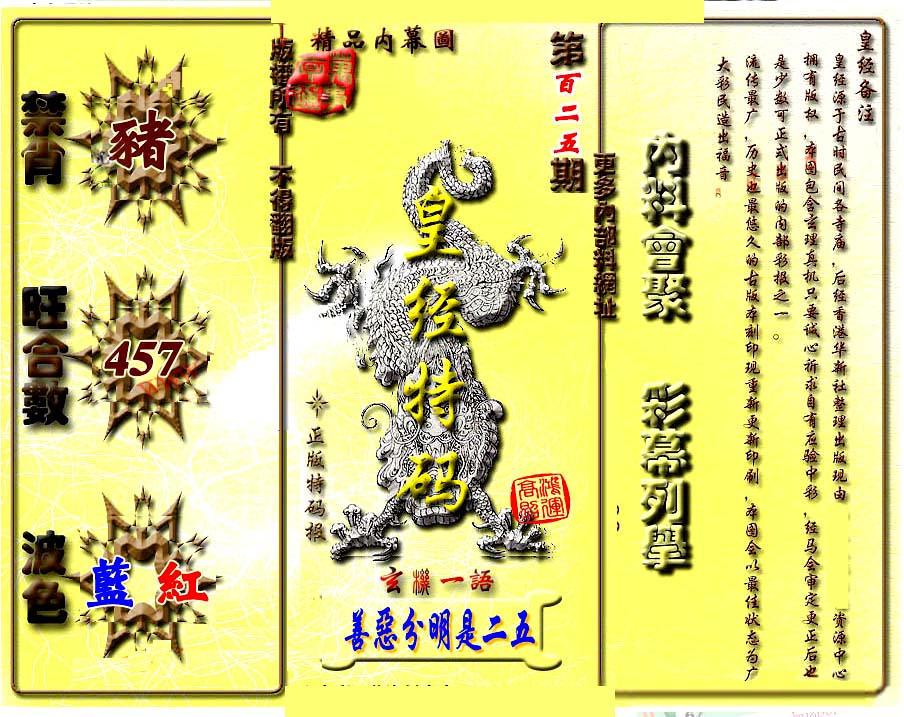 皇经备注
皇经源于古时民间各寺庙，后经香港华新社整理出版现由 资源中心
拥有版权，本图包含玄理真机只要诚心祈求自有应验中彩，经马会审定更正后也
是少数可正式出版的内部彩报之一。
流传最广，历史也最悠久的古版本刻印现重新更新印刷，本图会以最佳状态为广
大彩民造出福音。
內料會聚 彩幕列舉
更多內部料網址
精品内幕圖
第百二五期
皇经特码
正版特码报
鴻運
高照
玄機一語
善惡分明是二五
版權所有 不得翻版
禁肖
豬
旺合數
457
波色
藍 紅